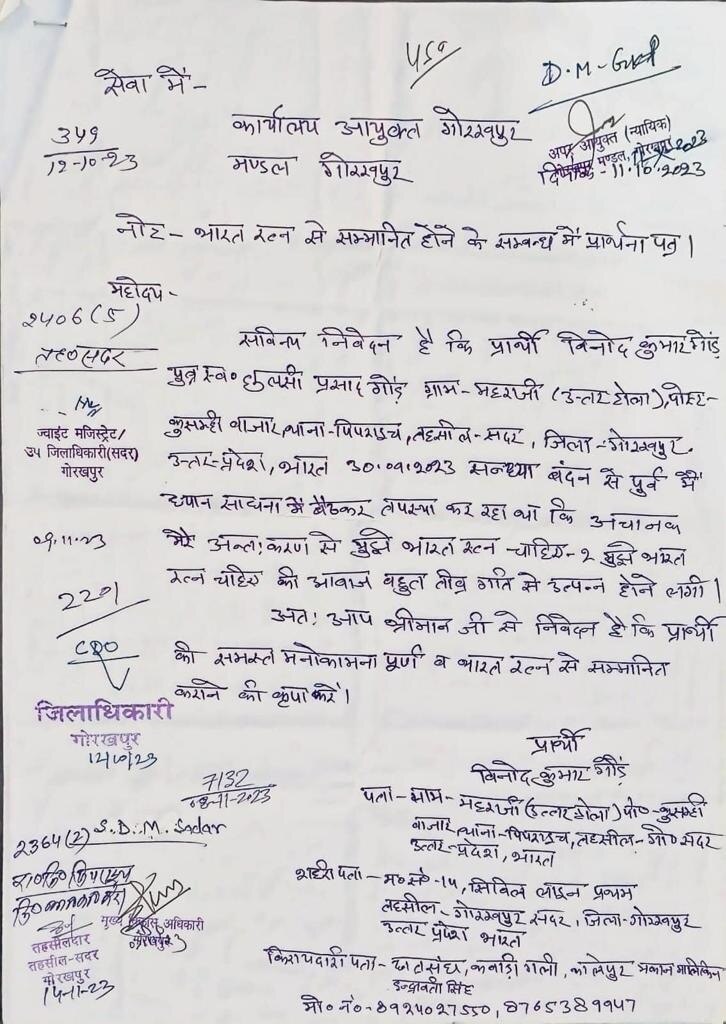 सेवा में-
D.M-
349
12-10-23
कार्यालय आयुक्त गोरखपुर
मण्डल गोरखपुर
अपर आयुक्त (न्यायिक)
गोरखपुर मण्डल, गोरखपुर
दिनांक-11.10.2023
नोट- भारत रत्न से सम्मानित होने के सम्बन्ध में प्रार्थना पत्र।
महोदय-
2406(5)
तह० सदर
ज्वाईट मजिस्ट्रेट/
उप जिलाधिकारी(सदर)
गोरखपुर
सविनय निवेदन है कि प्रार्थी विनोद कुमार गौंड़
पुत्र स्व० तुलसी प्रसाद गौंड़ ग्राम-महराजी (उत्तर टोला), पोस्ट-
कुसम्ही बाजार, थाना-पिपराइच, तहसील-सदर, जिला-गोरखपुर.
उत्तर-प्रदेश, भारत 30.09.2023 सन्ध्या बंदन से पुर्व में
ध्यान साधना में बैठकर तपस्या कर रहा था कि अचानक
मेरे अन्त:करण से मुझे भारत रत्न चाहिए-२ मुझे भारत
रत्न चाहिए की आवाज बहुत तीव्र गति से उत्पन्न होने लगी।
अत: आप श्रीमान जी से निवेदन है कि प्रार्थी
की समस्त मनोकामना पूर्ण व भारत रत्न से सम्मानित
कराने की कृपा करें।
09.11.23
2201
CDO
जिलाधिकारी
गोरखपुर
12/10/23
7132
08-11-2023
2364(2) S.D.M. Sadar
तहसीलदार
तहसील-सदर
गोरखपुर
14-11-23
मुख्य विकास अधिकारी
गोरखपुर
प्रार्थी
विनोद कुमार गौंड़
पता-ग्राम-महराजी (उत्तर टोला) पो०-कुसम्ही
बाजार, थाना-पिपराइच, तहसील-गो० सदर
उत्तर-प्रदेश, भारत
शहरी पता- म० सं०-14, सिविल लाइन प्रथम
तहसील- गोरखपुर सदर, जिला-गोरखपुर
उत्तर प्रदेश भारत
किरायदारी पता- कबाड़ी गली, मकान मालकिन
इन्द्रावती सिंह
मो० नं०-8924027550, 8765389947